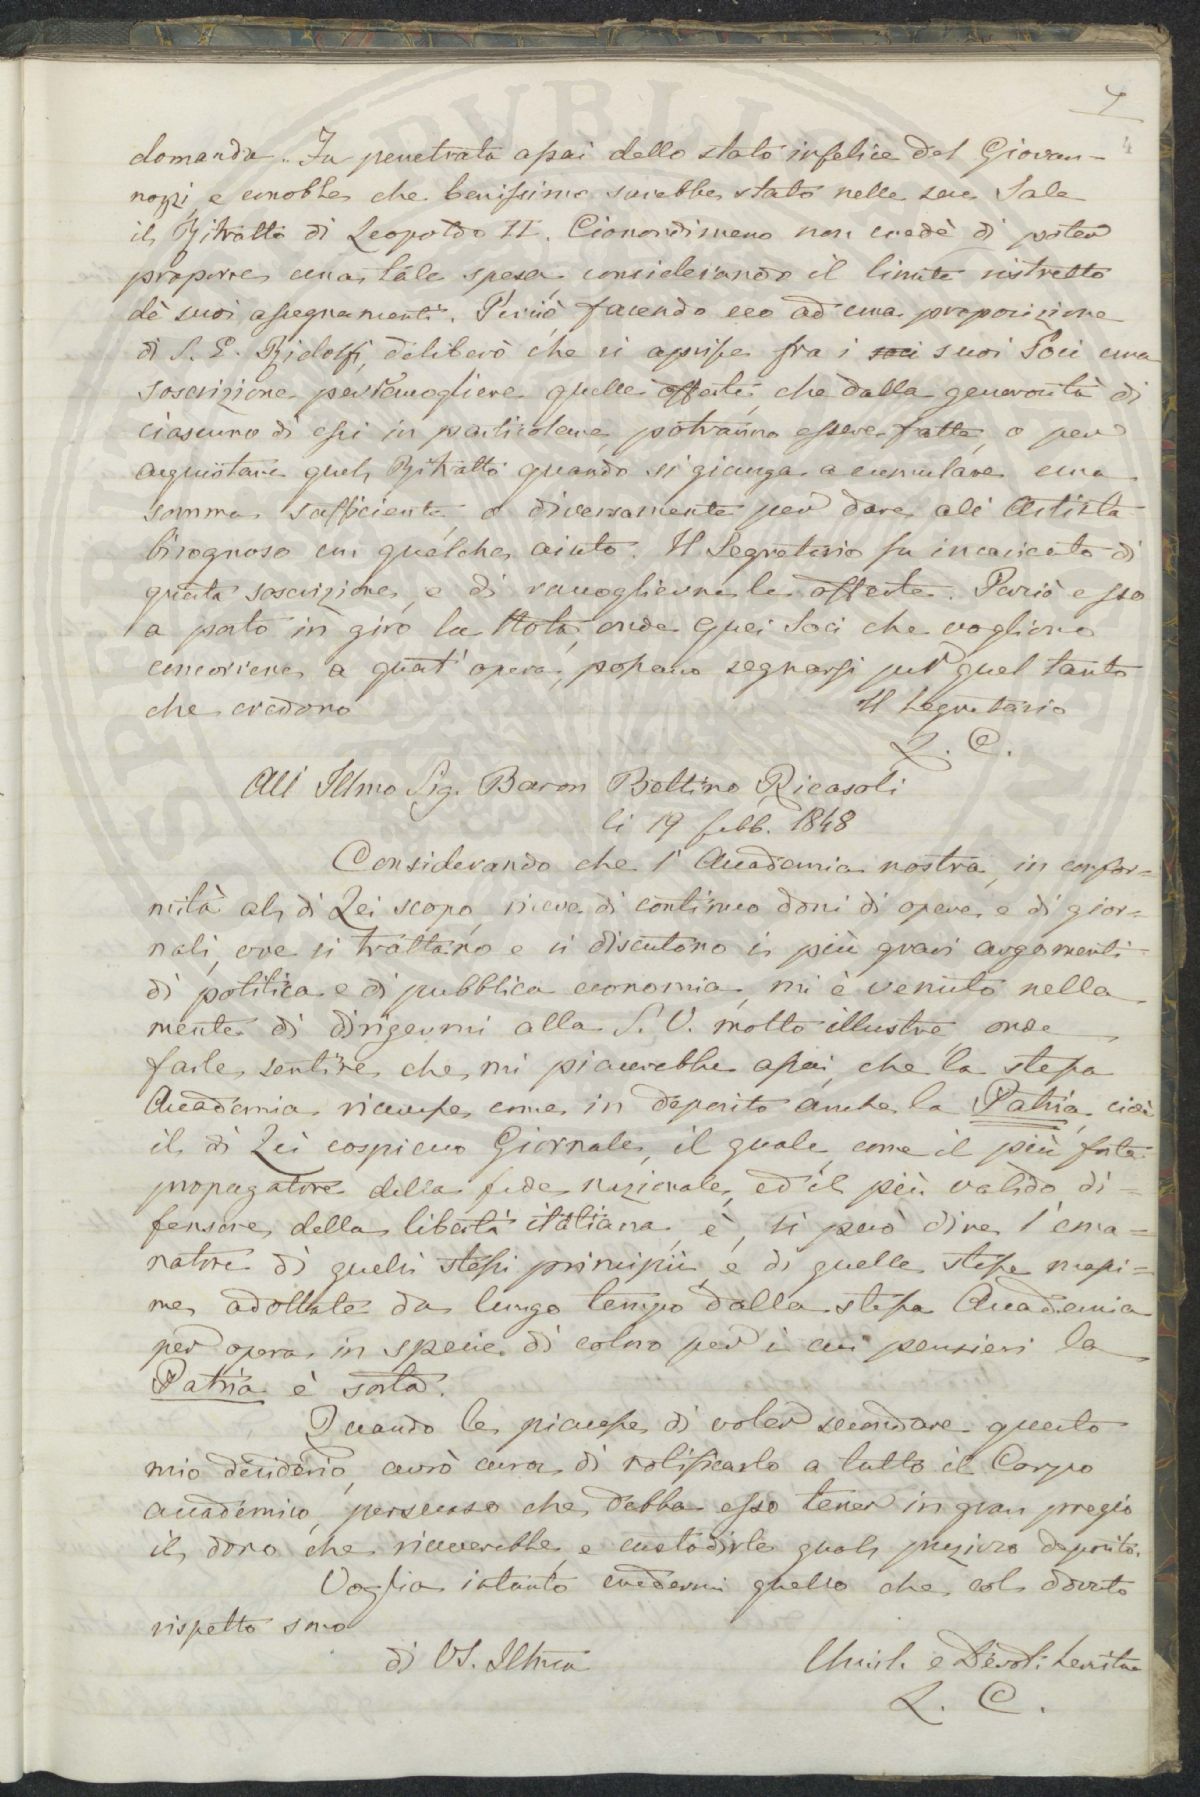 7
4
domanda. Fu penetrata assai dello stato infelice del Giovan-
nozzi, e conobbe che benissimo sarebbe stato nelle sue Sale
il Ritratto di Leopoldo II. Cionondimeno non credè di poter
proporre una tale spesa, considerando il limite ristretto
dè suoi assegnamenti. Perciò facendo eco ad una proposizione
di S. E. Ridolfi, deliberò che si aprisse fra i soci suoi Soci una
soscrizione per raccogliere quelle offerte, che dalla generosità di
ciascuno di essi in particolare, potranno essere fatte, o per
acquistare quel Ritratto quando si giunga a cumulare una
somma sufficiente o diversamente per dare all' Artista
bisognoso un qualche aiuto. Il Segretario fu incaricato di
questa soscrizione, e di raccoglierne le offerte. Perciò esso
a posto in giro la Nota, onde quei Soci che vogliono
concorrere a quest' opera, possano segnarsi per quel tanto
che credono
Il Segretario
L. C.
All' Illmo Sig. Baron Bettino Ricasoli
li 19 febb. 1848
Considerando che l' Accademia nostra, in confor-
mità al di Lei scopo, riceve di continuo doni di opere e di gior-
nali, ove si trattano e si discutono i più gravi argomenti
di politica e di pubblica economia, mi è venuto nella
mente di dirigermi alla S. V. molto illustre, onde
farle sentire che mi piacerebbe assai, che la stessa
Accademia ricevesse come in deposito anche la Patria, cioè
il di Lei cospicuo Giornale, il quale, come il più forte
propagatore della fede nazionale, ed il più valido di-
fensore della libertà italiana, è, si può dire l' ema-
natore di quelli stessi principii, e di quelle stesse massi-
me, adottate da lungo tempo dalla stessa Accademia
per opera in specie di coloro per i cui pensieri la
Patria è sorta.
Quando le piacesse di voler secondare questo
mio desiderio, avrò cura di notificarlo a tutto il Corpo
accademico, persuaso che debba esso tener in gran pregio
il dono che riceverebbe, e custodirlo qual prezioso deposito.
Voglia intanto credermi quello che col dovuto
rispetto sono
di VS. Illma
Umile e Devot: Servitore
L. C.